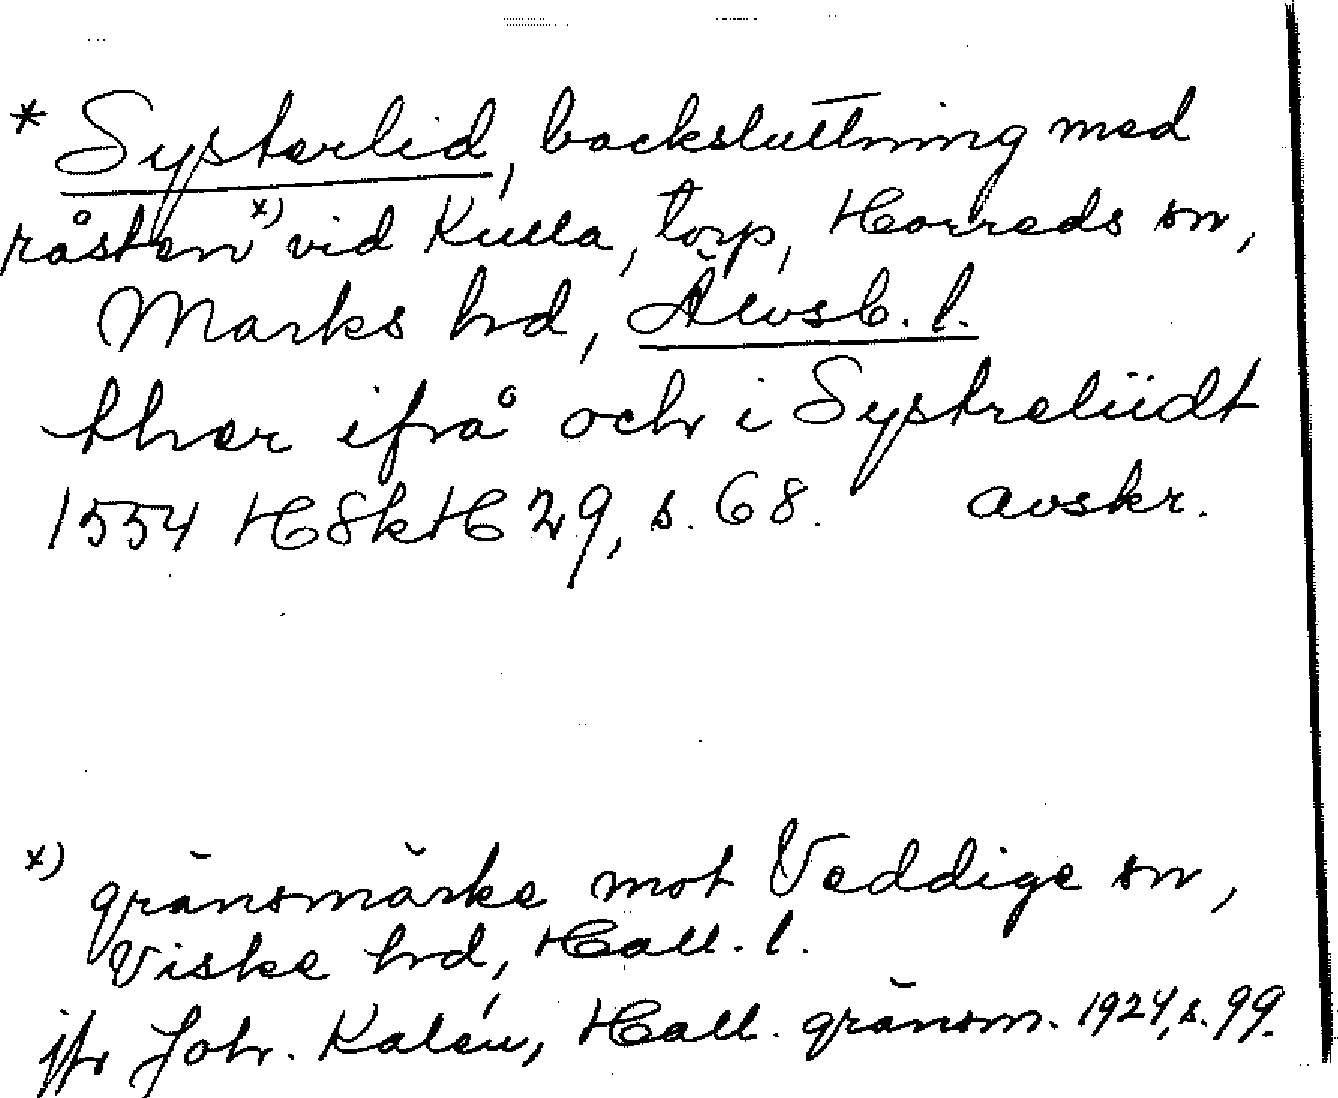 * Systerlid, backsluttning med
råsten x) vid Kulla, torp, Horreds sn,
Marks hd, Älvsb. l.
ther ifrå och i Systreliidt
1554 HSkH 29, s. 68. avskr.
x) gränsmärke mot Veddige sn,
Viske hd, Hall. l.
jfr Joh. Kalén, Hall. gränsm. 1924, s. 99.